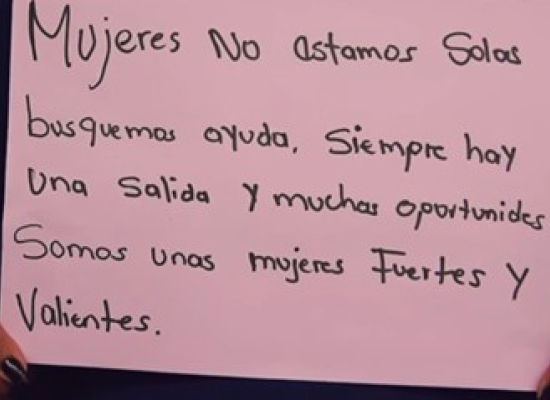 Mujeres No astamos Solas
busquemos ayuda. Siempre hay
Una Salida y muchas oportunides
Somos unas mujeres Fuertes y
Valientes.